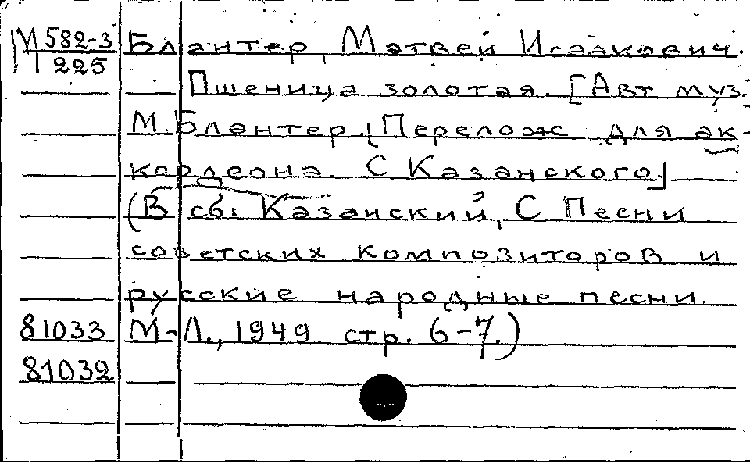 М 582-3 Блантер, Матвей Исаакович.
225
Пшеница золотая. [Авт муз.
М. Блантер. [Перелож для ак-
кордеона С Казанского]
(В сб: Казанский, С Песни
советских композиторов и
русские народные песни.
81033 М-Л., 1949 стр. 6-7.)
81032